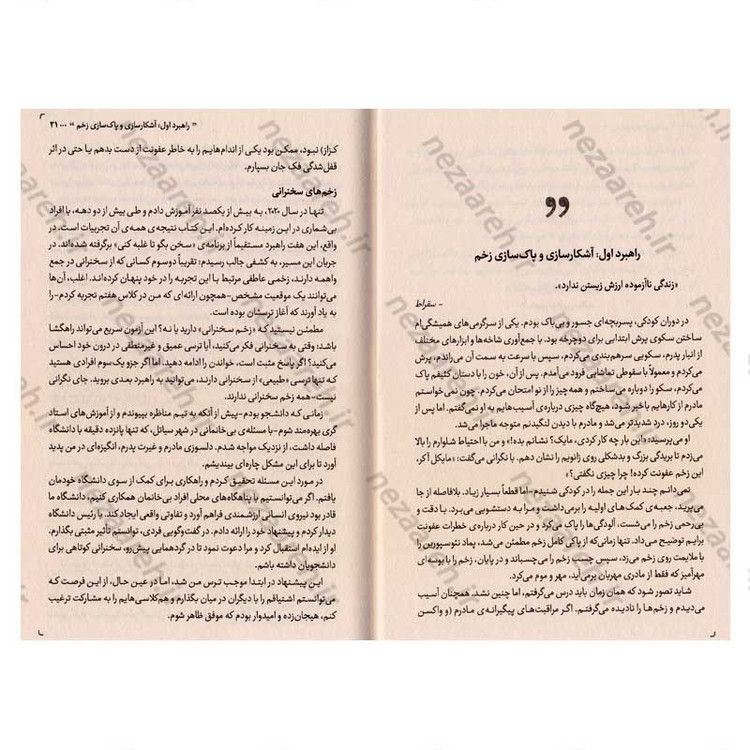 راهبرد اول: آشکارسازی و پاک‌سازی زخم
«زندگی ناآزموده ارزش زیستن ندارد».
- سقراط
در دوران کودکی، پسربچه‌ای جسور و بی‌باک بودم. یکی از سرگرمی‌های همیشگی‌ام
ساختن سکوی پرش ابتدایی برای دوچرخه بود. با جمع‌آوری شاخه‌ها و ابزارهای مختلف
از انبار پدرم، سکویی سرهم‌بندی می‌کردم، سپس با سرعت به سمت آن می‌راندم، پرش
می‌کردم و معمولاً با سقوطی تماشایی فرود می‌آمدم. پس از آن، خون را با دستان کثیفم پاک
می‌کردم، سکو را دوباره می‌ساختم و همه‌چیز را از نو امتحان می‌کردم. چون نمی‌خواستم
مادرم از کارهایم باخبر شود، هیچ‌گاه چیزی درباره‌ی آسیب‌هایم به او نمی‌گفتم. اما پس از
یکی‌دو روز، درد شدیدتر می‌شد و مادرم با دیدن لنگیدنم متوجه ماجرا می‌شد.
او می‌پرسید: «این بار چه کار کردی، مایک؟ نشانم بده!» و من با احتیاط شلوارم را بالا
می‌زدم تا بریدگی بزرگ و بدشکلی روی زانویم را نشان دهم. با نگرانی می‌گفت: «مایکل آکر،
این زخم عفونت کرده! چرا چیزی نگفتی؟»
نمی‌دانم چند بار این جمله را در کودکی شنیدم - اما قطعاً بسیار زیاد. بلافاصله از جا
می‌پرید، جعبه‌ی کمک‌های اولیه را برمی‌داشت و مرا به دستشویی می‌برد. با دقت و
بی‌رحمی زخم را می‌شست، آلودگی‌ها را پاک می‌کرد و در حین کار درباره‌ی خطرات عفونت
برایم توضیح می‌داد. تنها زمانی‌که از پاکی کامل زخم مطمئن می‌شد، پماد نئوسپورین را
با ملایمت روی زخم می‌زد، سپس چسب زخم را می‌چسباند و در پایان، زخم را با بوسه‌ای
مهرآمیز که فقط از مادری مهربان برمی‌آید، مهر و موم می‌کرد.
شاید تصور شود که همان زمان باید درس می‌گرفتم، اما چنین نشد. همچنان آسیب
می‌دیدم و زخم‌ها را نادیده می‌گرفتم. اگر مراقبت‌های پیگیرانه‌ی مادرم (و واکسن
" راهبرد اول: آشکارسازی و پاک‌سازی زخم " ... ۲۱
کزاز) نبود، ممکن بود یکی از اندام‌هایم را به خاطر عفونت از دست بدهم یا حتی در اثر
قفل‌شدگی فک جان بسپارم.
زخم‌های سخنرانی
تنها در سال ۲۰۲۰، به بیش از یکصد نفر آموزش دادم و طی بیش از دو دهه، با افراد
بی‌شماری در این زمینه کار کرده‌ام. این کتاب نتیجه‌ی همه‌ی آن تجربیات است. در
واقع، این هفت راهبرد مستقیماً از برنامه‌ی «سخن بگو تا غلبه کنی» برگرفته شده‌اند. در
جریان این مسیر، به کشفی جالب رسیدم: تقریباً دوسوم کسانی که از سخنرانی در جمع
واهمه دارند، زخمی عاطفی مرتبط با این تجربه را در خود پنهان کرده‌اند. اغلب، آن‌ها
می‌توانند یک موقعیت مشخص-همچون ارائه‌ای که من در کلاس هفتم تجربه کردم-را
به یاد آورند که آغاز ترسشان بوده است.
مطمئن نیستید که «زخم سخنرانی» دارید یا نه؟ این آزمون سریع می‌تواند راهگشا
باشد: وقتی به سخنرانی فکر می‌کنید، آیا ترسی عمیق و غیرمنطقی در درون خود احساس
می‌کنید؟ اگر پاسخ مثبت است، خواندن را ادامه دهید. اما اگر جزو یک‌سوم افرادی هستید
که تنها ترسی «طبیعی» از سخنرانی دارند، می‌توانید به راهبرد بعدی بروید. جای نگرانی
نیست-همه زخم سخنرانی ندارند.
زمانی که دانشجو بودم-پیش از آنکه به تیم مناظره بپیوندم و از آموزش‌های استاد
گری بهره‌مند شوم-با مسئله‌ی بی‌خانمانی در شهر سیاتل، که تنها پانزده دقیقه با دانشگاه
فاصله داشت، از نزدیک مواجه شدم. دلسوزی مادرم و غیرت پدرم، انگیزه‌ای در من پدید
آورد تا برای این مشکل چاره‌ای بیندیشم.
در مورد این مسئله تحقیق کردم و راهکاری برای کمک از سوی دانشگاه خودمان
یافتم. اگر می‌توانستیم با پناهگاه‌های محلی افراد بی‌خانمان همکاری کنیم، دانشگاه ما
قادر بود نیروی انسانی ارزشمندی فراهم آورد و تفاوتی واقعی ایجاد کند. با رئیس دانشگاه
دیدار کردم و پیشنهاد خود را ارائه دادم. در گفت‌وگویی فردی، توانستم تأثیر مثبتی بگذارم.
او از ایده‌ام استقبال کرد و مرا دعوت نمود تا در گردهمایی پیش رو، سخنرانی کوتاهی برای
دانشجویان داشته باشم.
این پیشنهاد در ابتدا موجب ترس من شد، اما در عین حال، از این فرصت که
می‌توانستم اشتیاقم را با دیگران در میان بگذارم و هم‌کلاسی‌هایم را به مشارکت ترغیب
کنم، هیجان‌زده و امیدوار بودم که موفق ظاهر شوم.
nezaareh.ir